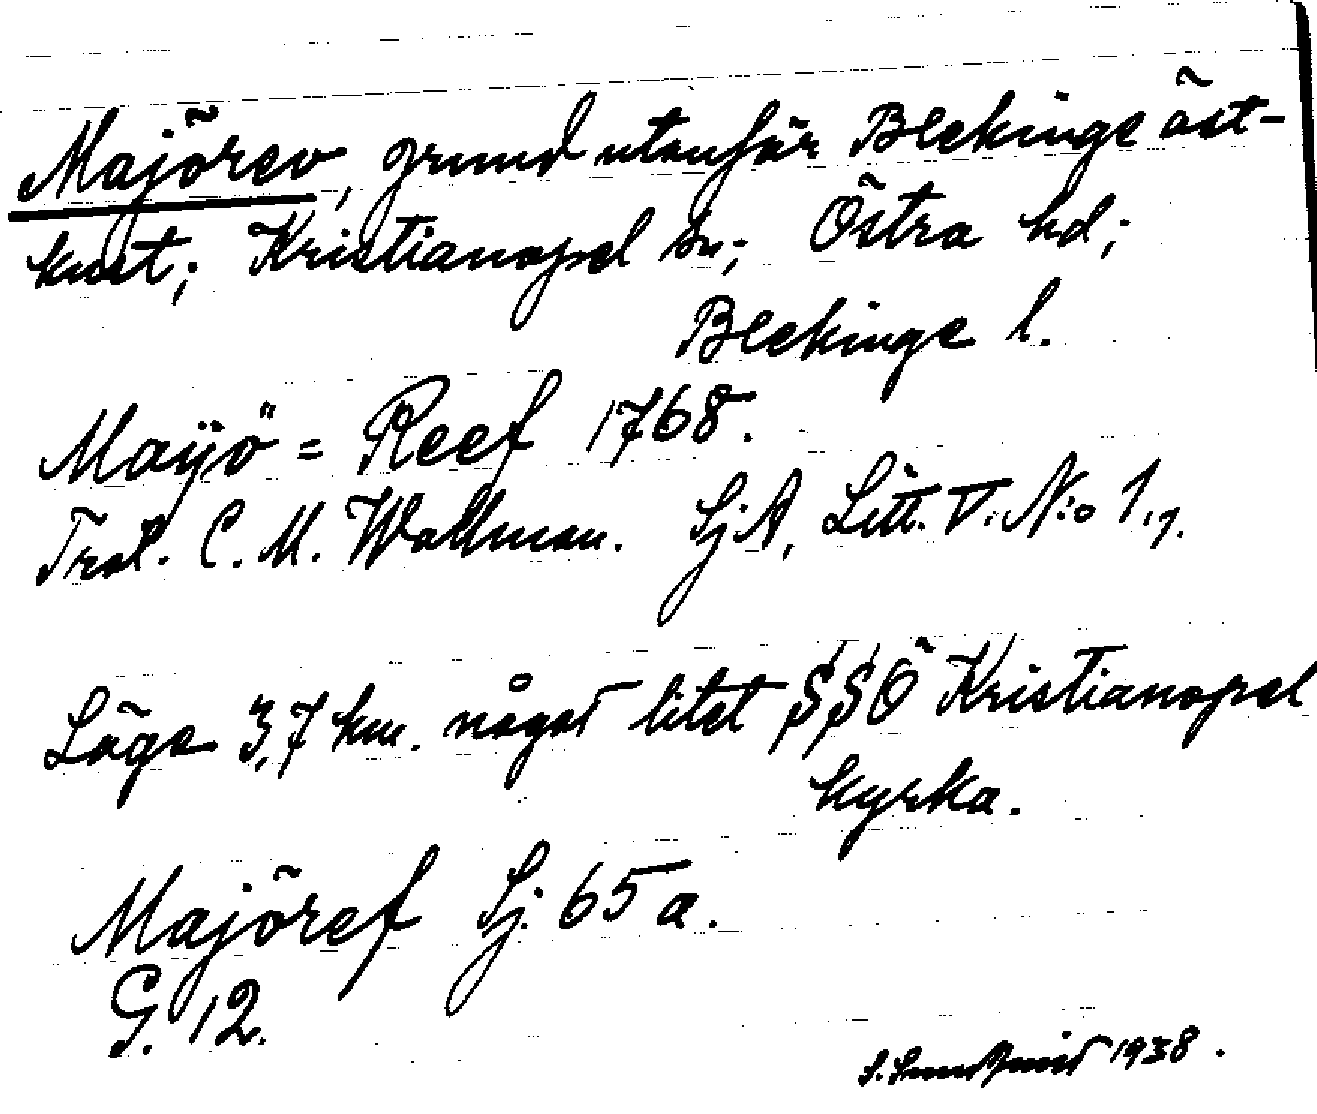 Majörev, grund utanför Blekinge öst-
kust; Kristianopel sn; Östra hd;
Blekinge l.
Mayö = Reef 1768.
Trol. C. M. Wallman. Sj A, Litt. V. N:o 1,7.
Läge 3,7 km. något litet SSÖ Kristianopel
kyrka.
Majöref Sj. 65 a.
G. 12.
1938.